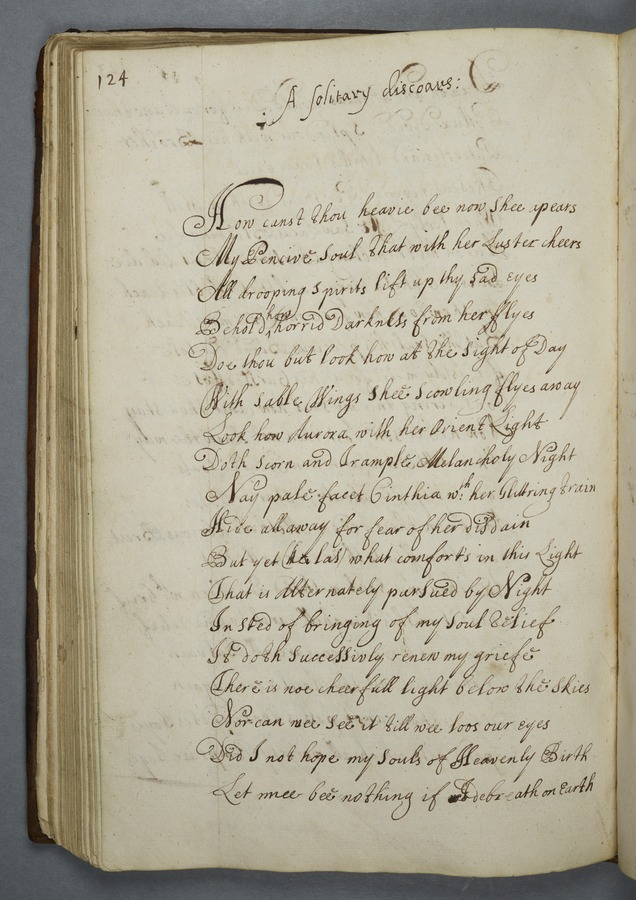 124
A solitary discours:
How canst thou heavie bee now Shee apears
My Pencive Soul, that with her Luster cheers
All drooping Spirits lift up thy sad eyes
Behold how horrid Darkness from her flyes
Doe thou but look how at the Sight of Day
With Sable Wings Shee Scowling flyes away
Look how Aurora with her Orient Light
Doth Scorn and Trample Melancholy Night
Nay pale facet Cinthia wth her Glittring train
Hide all away for fear of her disdain
But yet (Ae las) what comforts in this Light
That is Alternately pursued by Night
In sted of bringing of my soul relief
It doth Successivly renew my griefe
There is noe cheerfull light below the Skies
Nor can wee See it till wee loos our eyes
Did I not hope my Souls of Heavenly Birth
Let mee bee nothing if I debreath on Earth